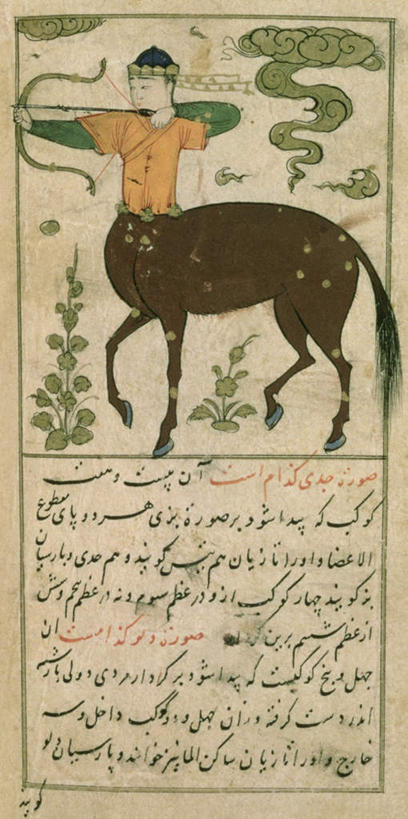 صورة جدی کدام است آن بیست و هفت
کوکب که پیدا شود بر صورة بزی هر دو پای مقطوع
الاعضا و او را تازیان هم تیس گویند و هم جدی و پارسیان
بز گویند چهار کوکب ازو در عظم سوم و نه در عظم پنجم و شش
از عظم ششم برین کردار صورة دلو کدامست آن
چهل و پنج کوکبست که پیدا شود بر کردار مردی دولی بازشیر
اندر دست گرفته و زان چهل و دو کوکب داخل و سه
خارج و او را تازیان ساکن الما نیز خوانند و پارسیان دلو
گویند